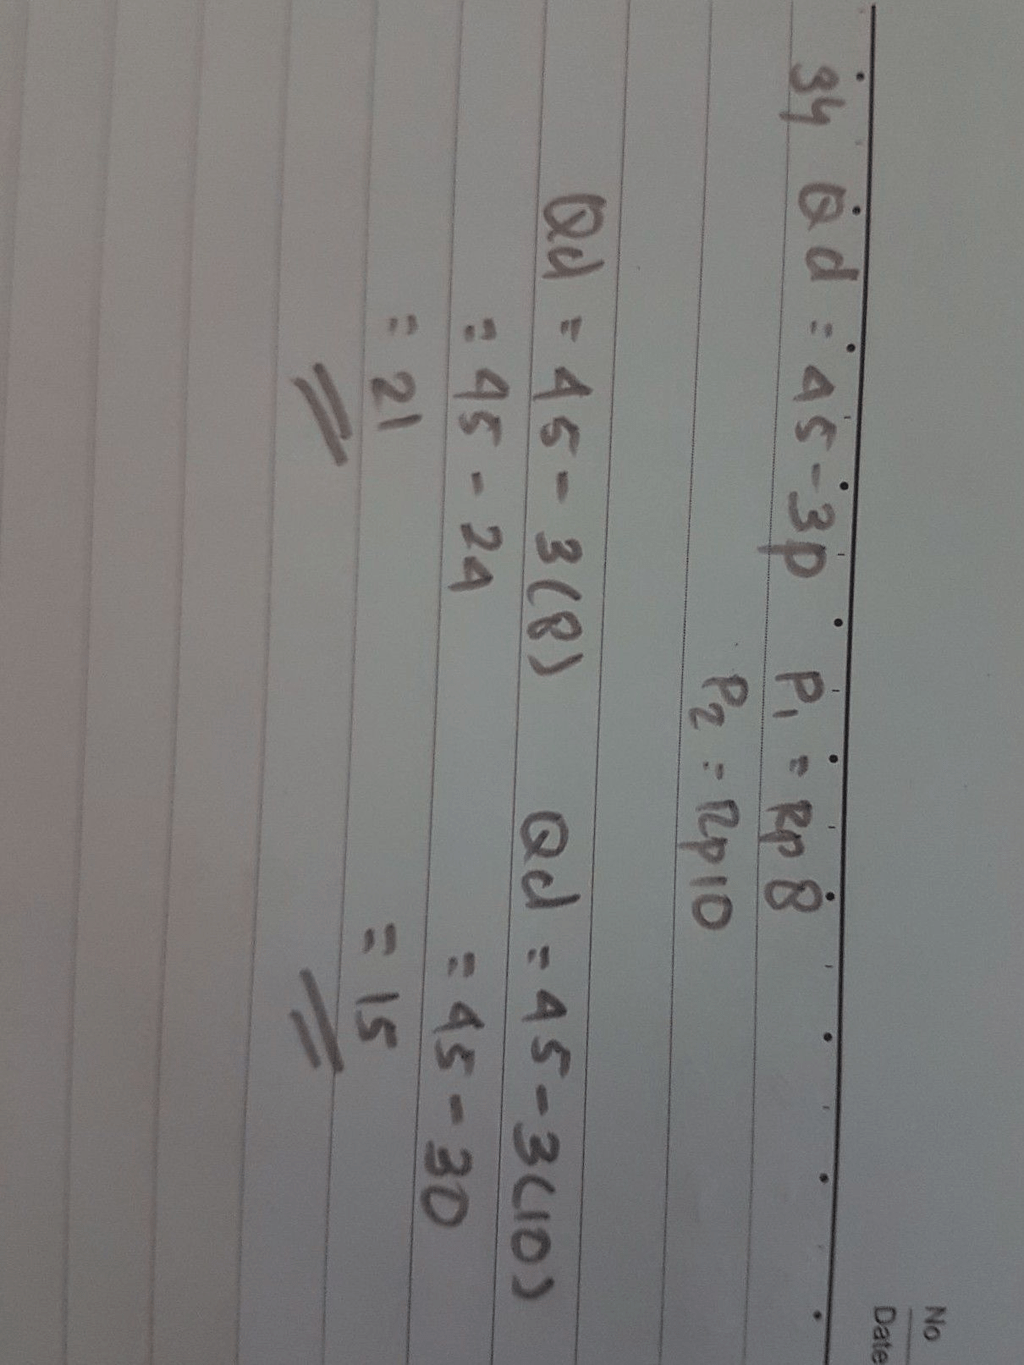 No
Date
34 Qd = 45 - 3p P₁ = Rp 8
P₂ = Rp 10
Qd = 45 - 3(8) Qd = 45 - 3(10)
= 45 - 24 = 45 - 30
= 21 = 15